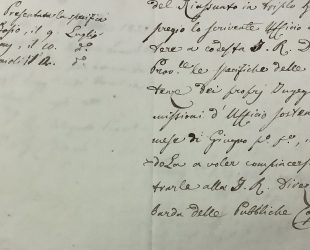 Presentata la specifica
il 9. Luglio
il 10. d.o
d.o
del Riassunto in triplo
pregio lo scrivente Ufficio
tere a codesta I. R. D
Prov.le le specifiche delle
tenze dei proprj Ingeg
missioni d'Ufficio sosten
mese di Giugno p.o p.o,
dola a voler compiacers
trarle alla I. R. Dire
barda delle Pubbliche